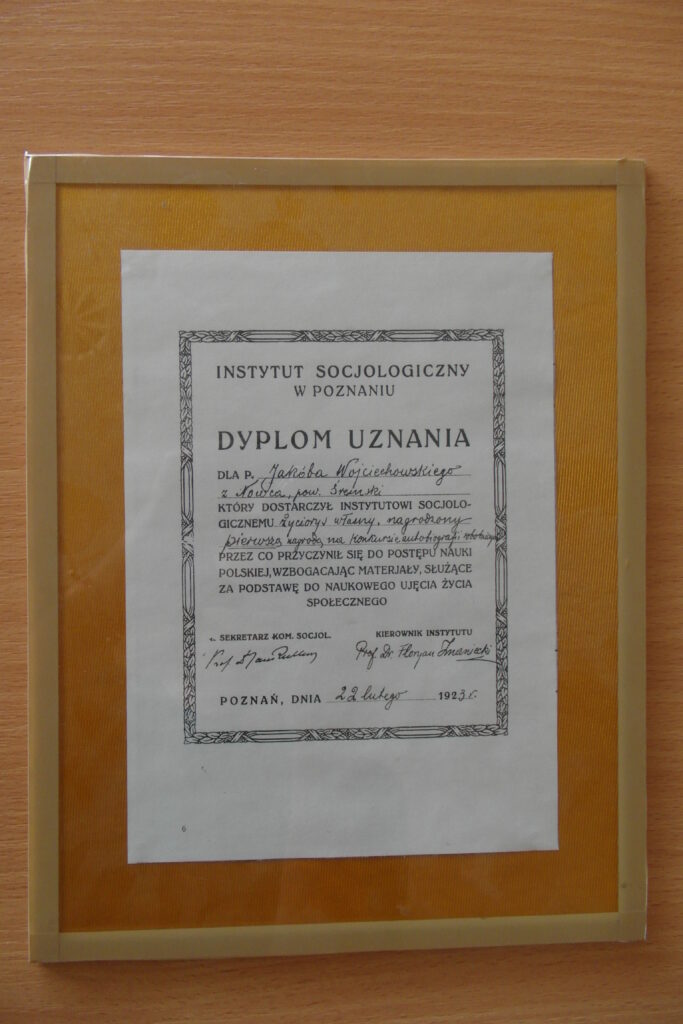 INSTYTUT SOCJOLOGICZNY
W POZNANIU
DYPLOM UZNANIA
DLA P. Jakóba Wojciechowskiego
z Nówca, pow. Śremski
KTÓRY DOSTARCZYŁ INSTYTUTOWI SOCJOLO-
GICZNEMU życiorys własny, nagrodzony
pierwszą nagrodą na konkursie autobiografji robotniczych
PRZEZ CO PRZYCZYNIŁ SIĘ DO POSTĘPU NAUKI
POLSKIEJ, WZBOGACAJĄC MATERJAŁY, SŁUŻĄCE
ZA PODSTAWĘ DO NAUKOWEGO UJĘCIA ŻYCIA
SPOŁECZNEGO
SEKRETARZ KOM. SOCJOL. KIEROWNIK INSTYTUTU
Prof. Prof. Dr. Florjan Znaniecki
POZNAŃ, DNIA 22 lutego 1923 r.
6